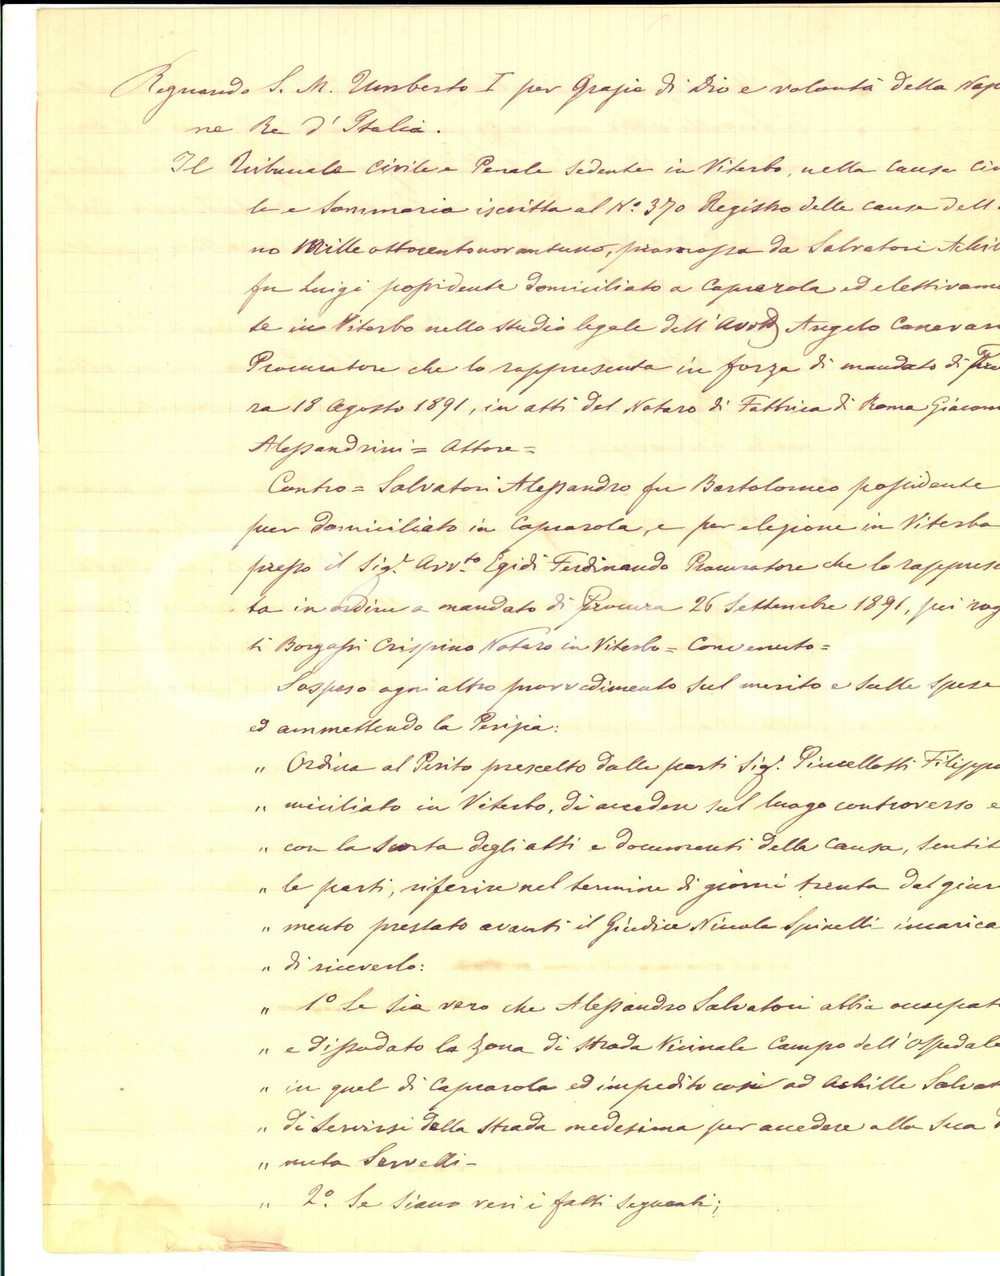 Regnando S. M. Umberto I per Grazia di Dio e volontà della Nazio
ne Re d'Italia.
Il Tribunale Civile e Penale sedente in Viterbo, nella causa Civi
le e Sommaria iscritta al N.° 370 Registro delle cause dell'
no Mille ottocentonovantuno, promossa da Salvatori Achil
fu Luigi possidente domiciliato a Caprarola ed elettivamen
te in Viterbo nello studio legale dell' Avv.to Angelo Canevari
Procuratore che lo rappresenta in forza di mandato di Procu
ra 18 Agosto 1891, in atti del Notaro di Fabbrica di Roma Giacom
Alessandrini = Attore =
Contro = Salvatori Alessandro fu Bartolomeo possidente
pur domiciliato in Caprarola, e per elezione in Viterbo
presso il Sig.r Avv.to Egidi Ferdinando Procuratore che lo rappresen
ta in ordine a mandato di Procura 26 Settembre 1891, pei rog
ti Borgassi Crispino Notaro in Viterbo = Convenuto =
Sospeso ogni altro provvedimento sul merito e sulle spese
ed ammettendo la Perizia:
" Ordina al Perito prescelto dalle parti Sig.r Pincellotti Filippo
" miciliato in Viterbo, di accedere sul luogo controverso e
" con la scorta degli atti e documenti della causa, sentit
" le parti, riferire nel termine di giorni trenta dal giura
" mento prestato avanti il Giudice Nicola Spinelli incarica
" di riceverlo:
" 1° Se sia vero che Alessandro Salvatori abbia occupat
" e dissodato la zona di strada Vicinale Campo dell'Ospedale
" in quel di Caprarola ed impedito così ad Achille Salvat
" di servirsi della strada medesima per accedere alla sua t
" nuta Servelli -
" 2° Se siano veri i fatti seguenti;